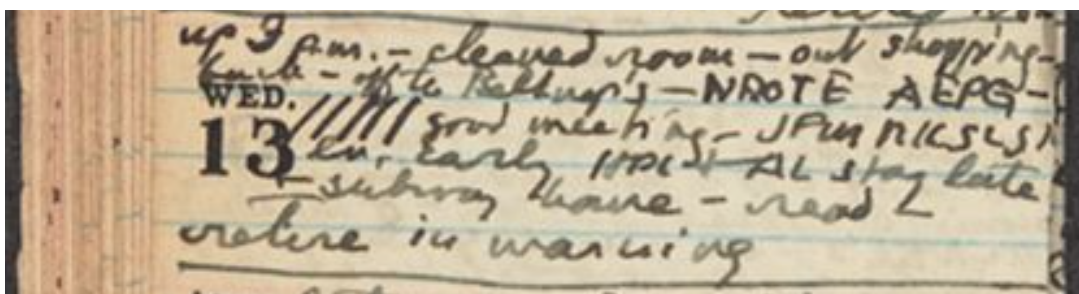 up 3 p.m. – cleaned room – out shopping –
back – off to Belknap's – WROTE AEPG –
WED. ///// good meeting – JFM RK SL SL
13 lv. early HPL + AL stay late
– subway home – read &
retire in morning